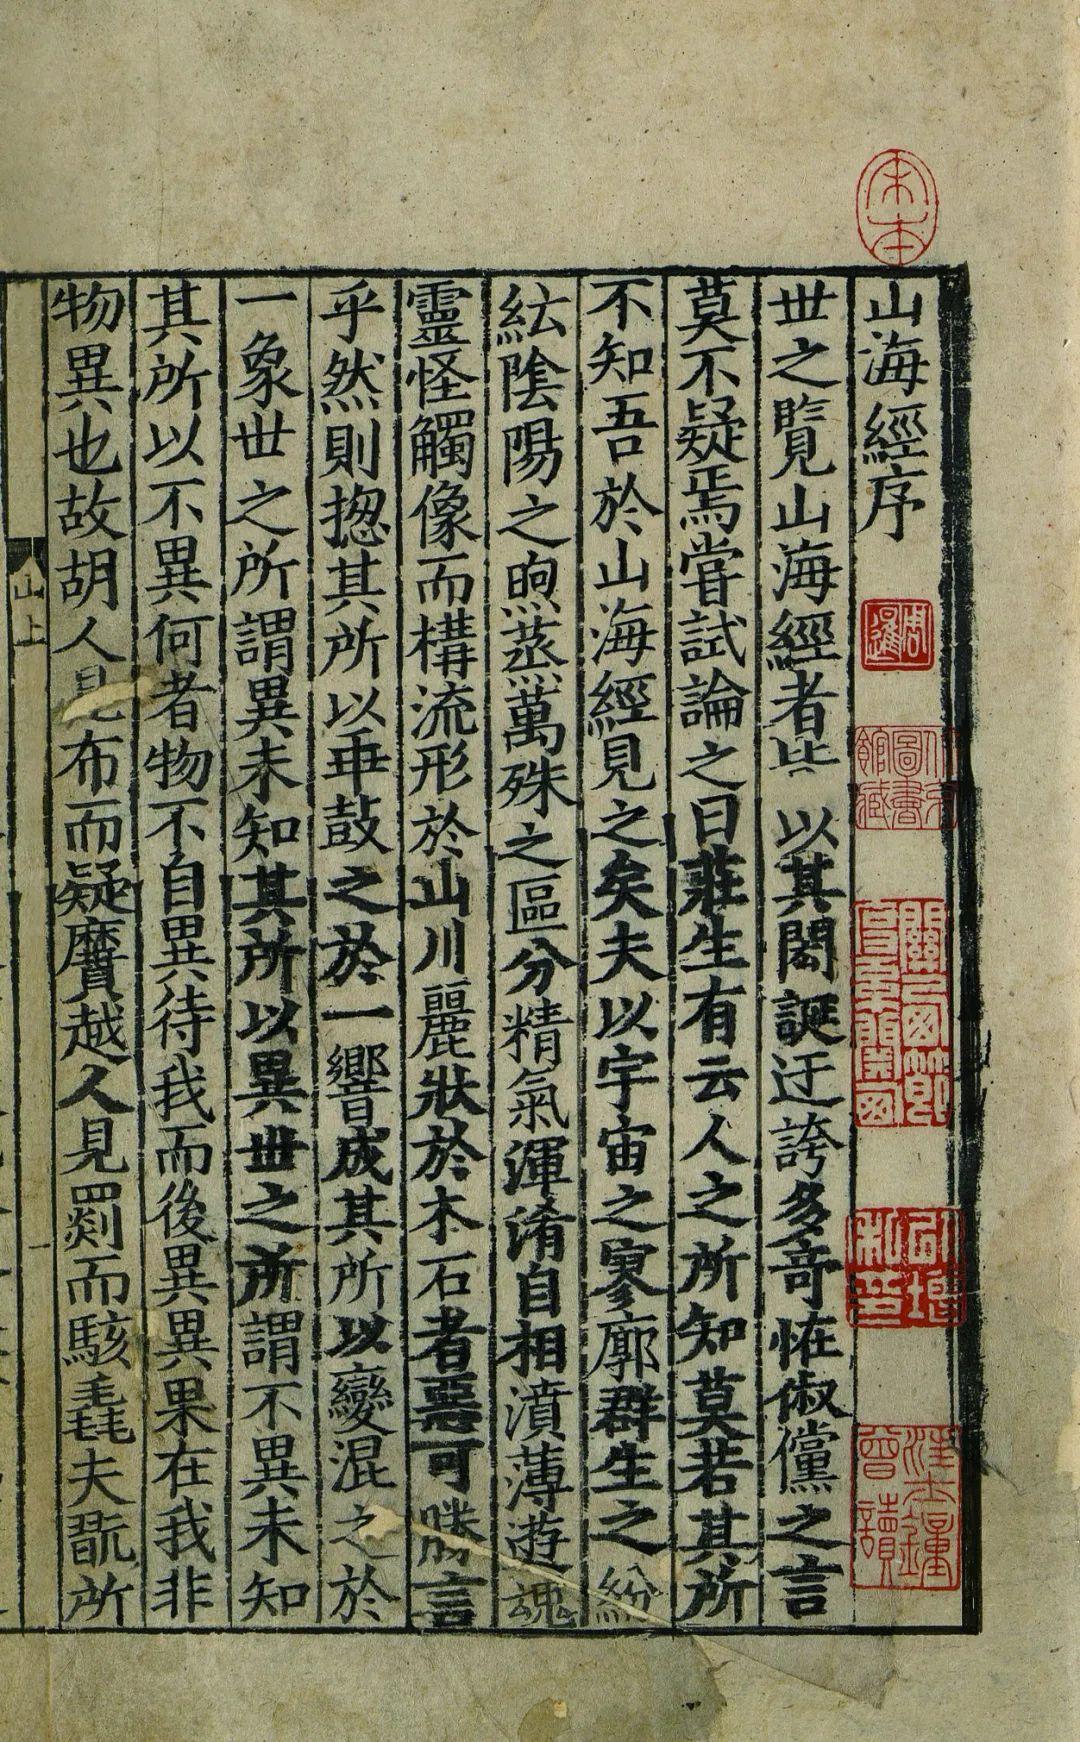 山海經序
世之覽山海經者皆以其閎誕迂誇多奇恠俶儻之言
莫不疑焉嘗試論之曰莊生有云人之所知莫若其所
不知吾於山海經見之矣夫以宇宙之寥廓群生之紛
紜陰陽之煦蒸萬殊之區分精氣渾淆自相濆薄遊魂
靈怪觸像而構流形於山川麗狀於木石者惡可勝言
乎然則揔其所以乖鼓之於一響成其所以變混之於
一象世之所謂異未知其所以異世之所謂不異未知
其所以不異何者物不自異待我而後異異果在我非
物異也故胡人見布而疑黂越人見罽而駭毳夫翫所
山上
一
宋本
周暹